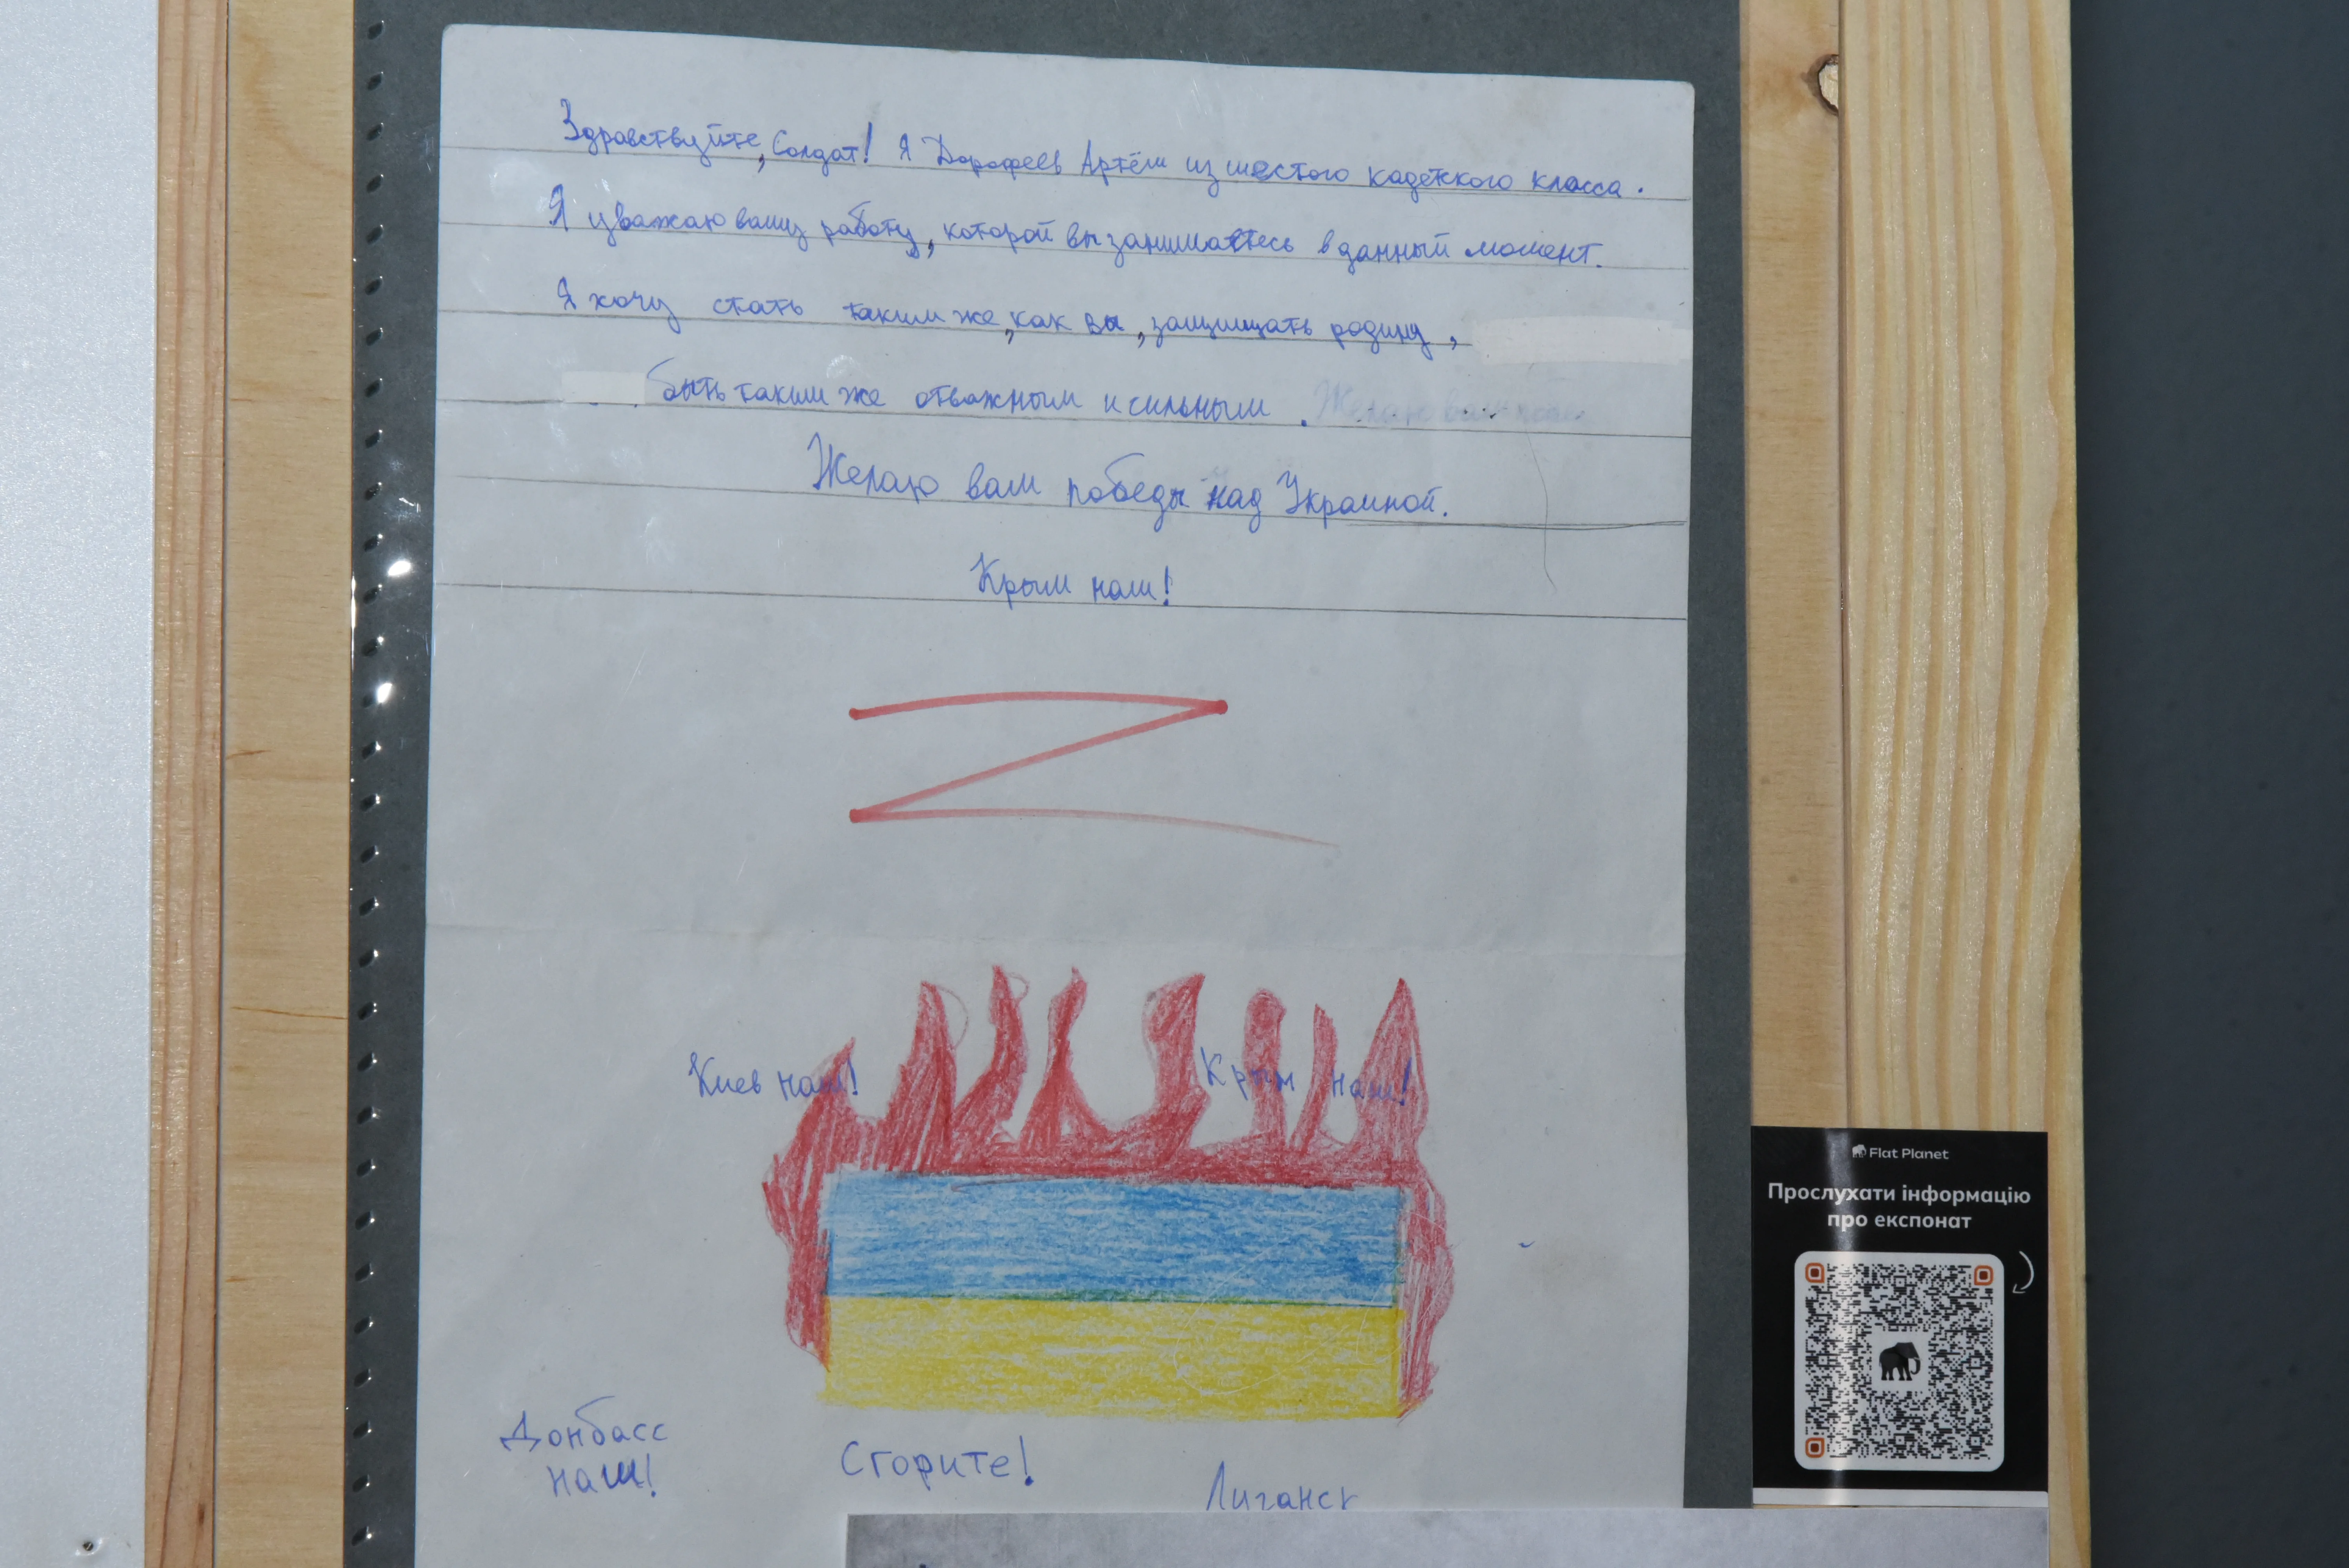 Здравствуйте, Солдат! Я Дорофеев Артём из шестого кадетского класса.
Я уважаю вашу работу, которой вы занимаетесь в данный момент.
Я хочу стать таким же, как вы, защищать родину,
быть таким же отважным и сильным. Желаю вам
Желаю вам победы над Украиной.
Крым наш!
Z
Киев наш! Крым наш!
Донбасс
наш!
Сгорите!
Луганск
Flat Planet
Прослухати інформацію
про експонат